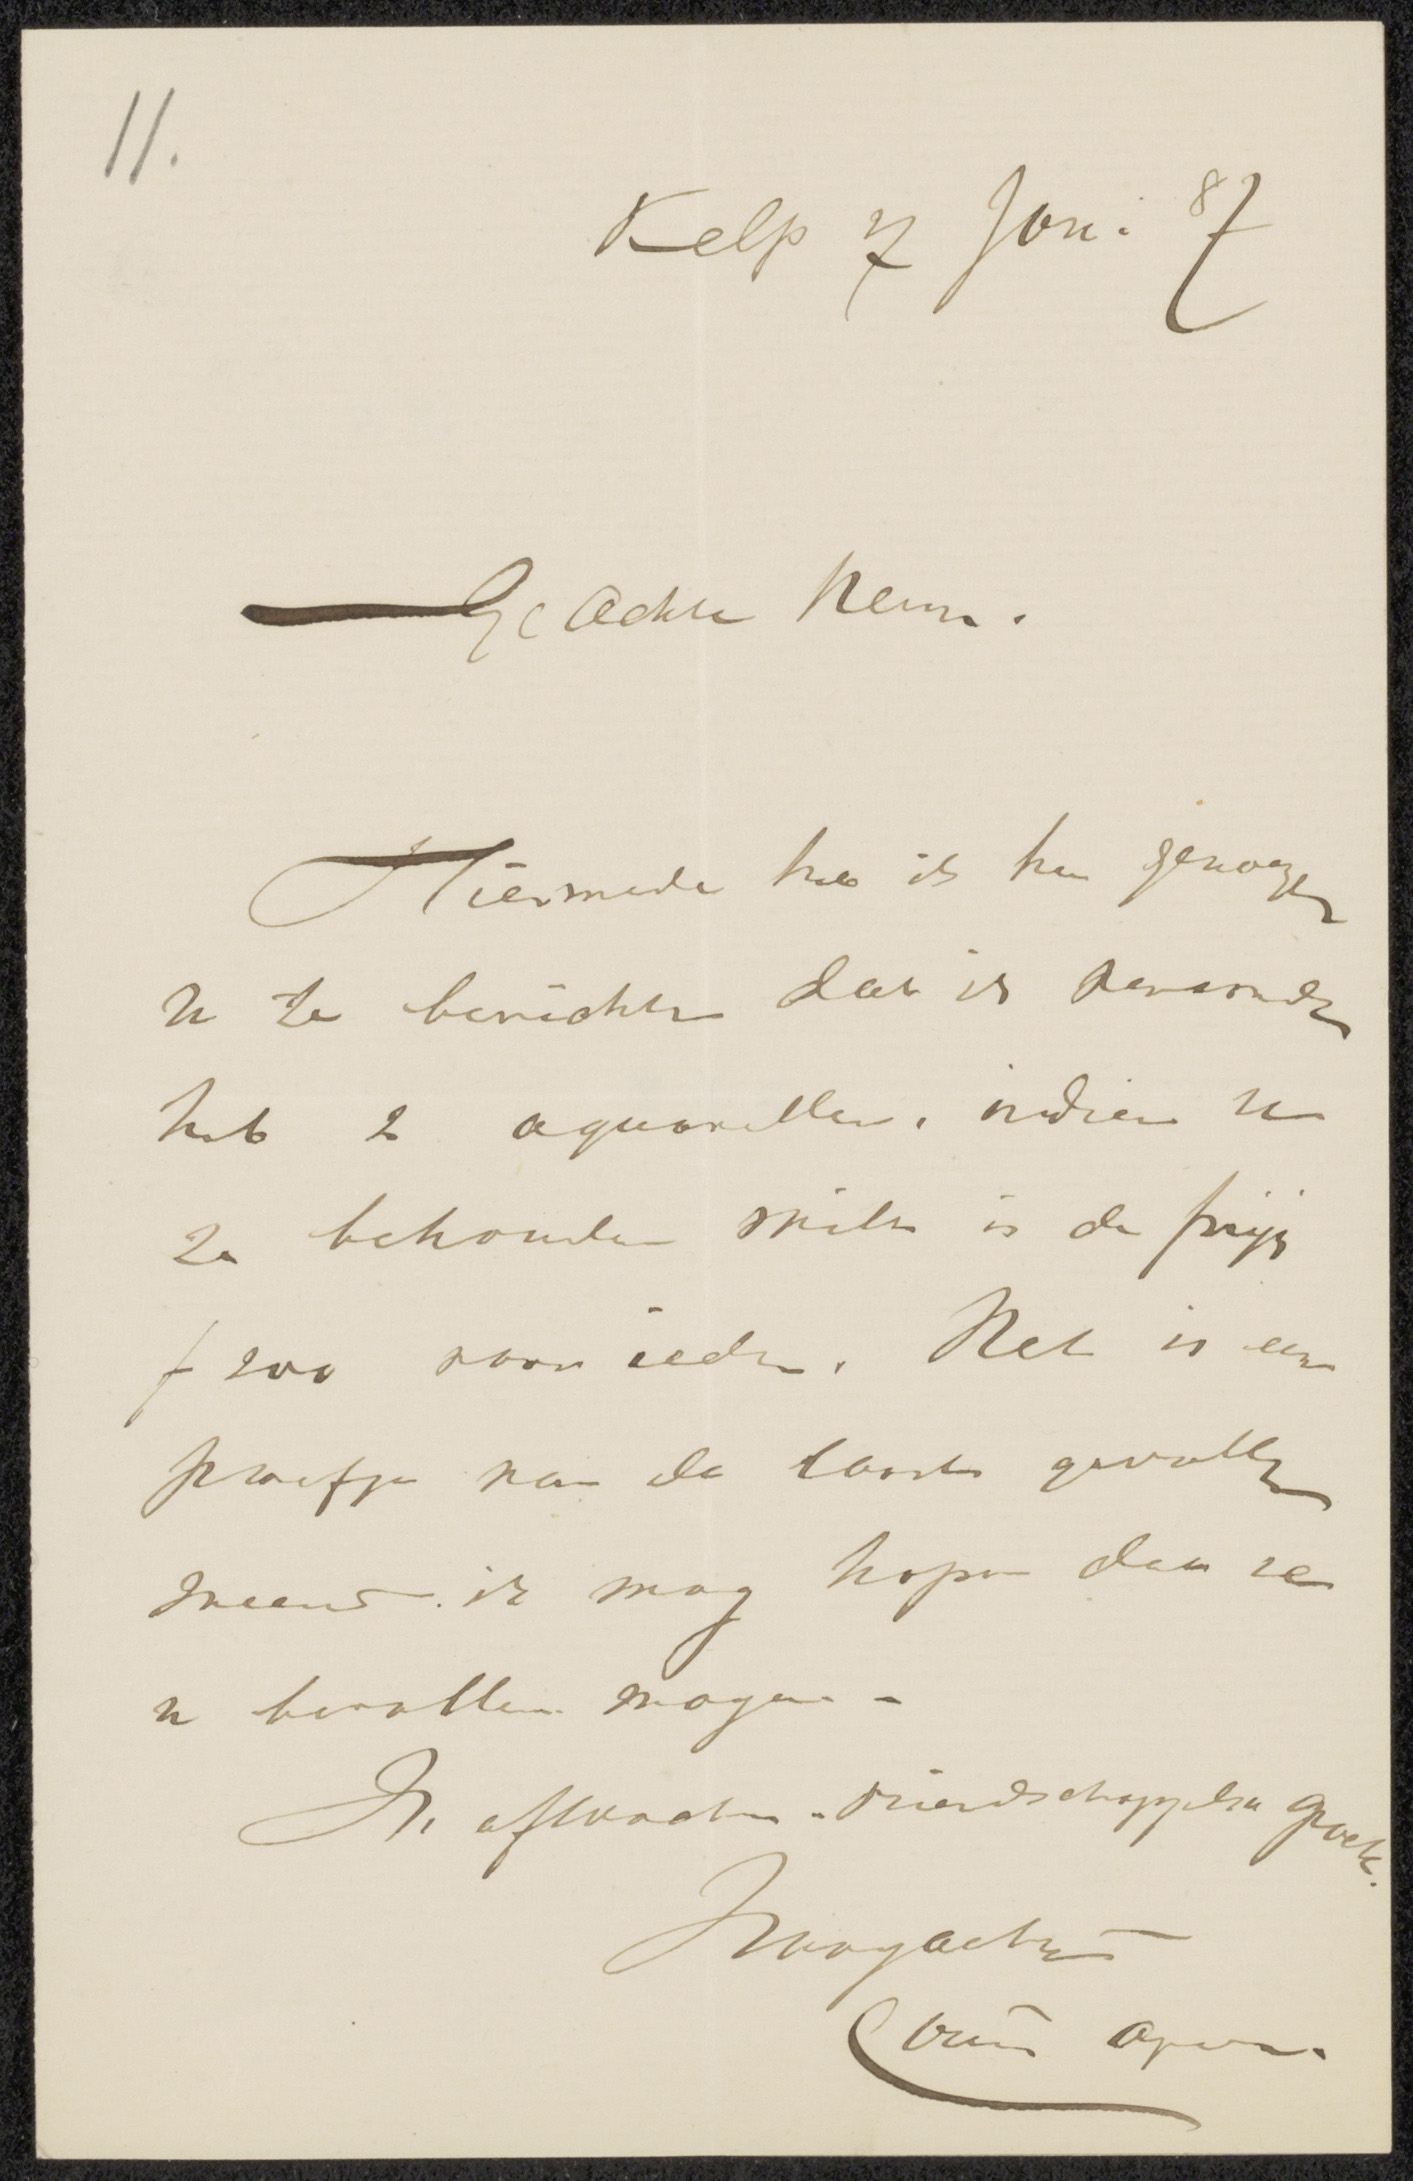 11.
Velp 7 Juni 87
Geachte Heer.
Hiermede heb ik het genoegen
U te berichten dat ik verzonden
heb 2 aquarellen, indien U
ze behouden wilt is de prijs
f 200 voor ieder. Het is een
proefje van de laatst gevallen
sneeuw. ik mag hopen dat ze
U bevallen mogen -
In afwachten - vriendschappelijke groete.
Hoogachtend
Louis Apol.